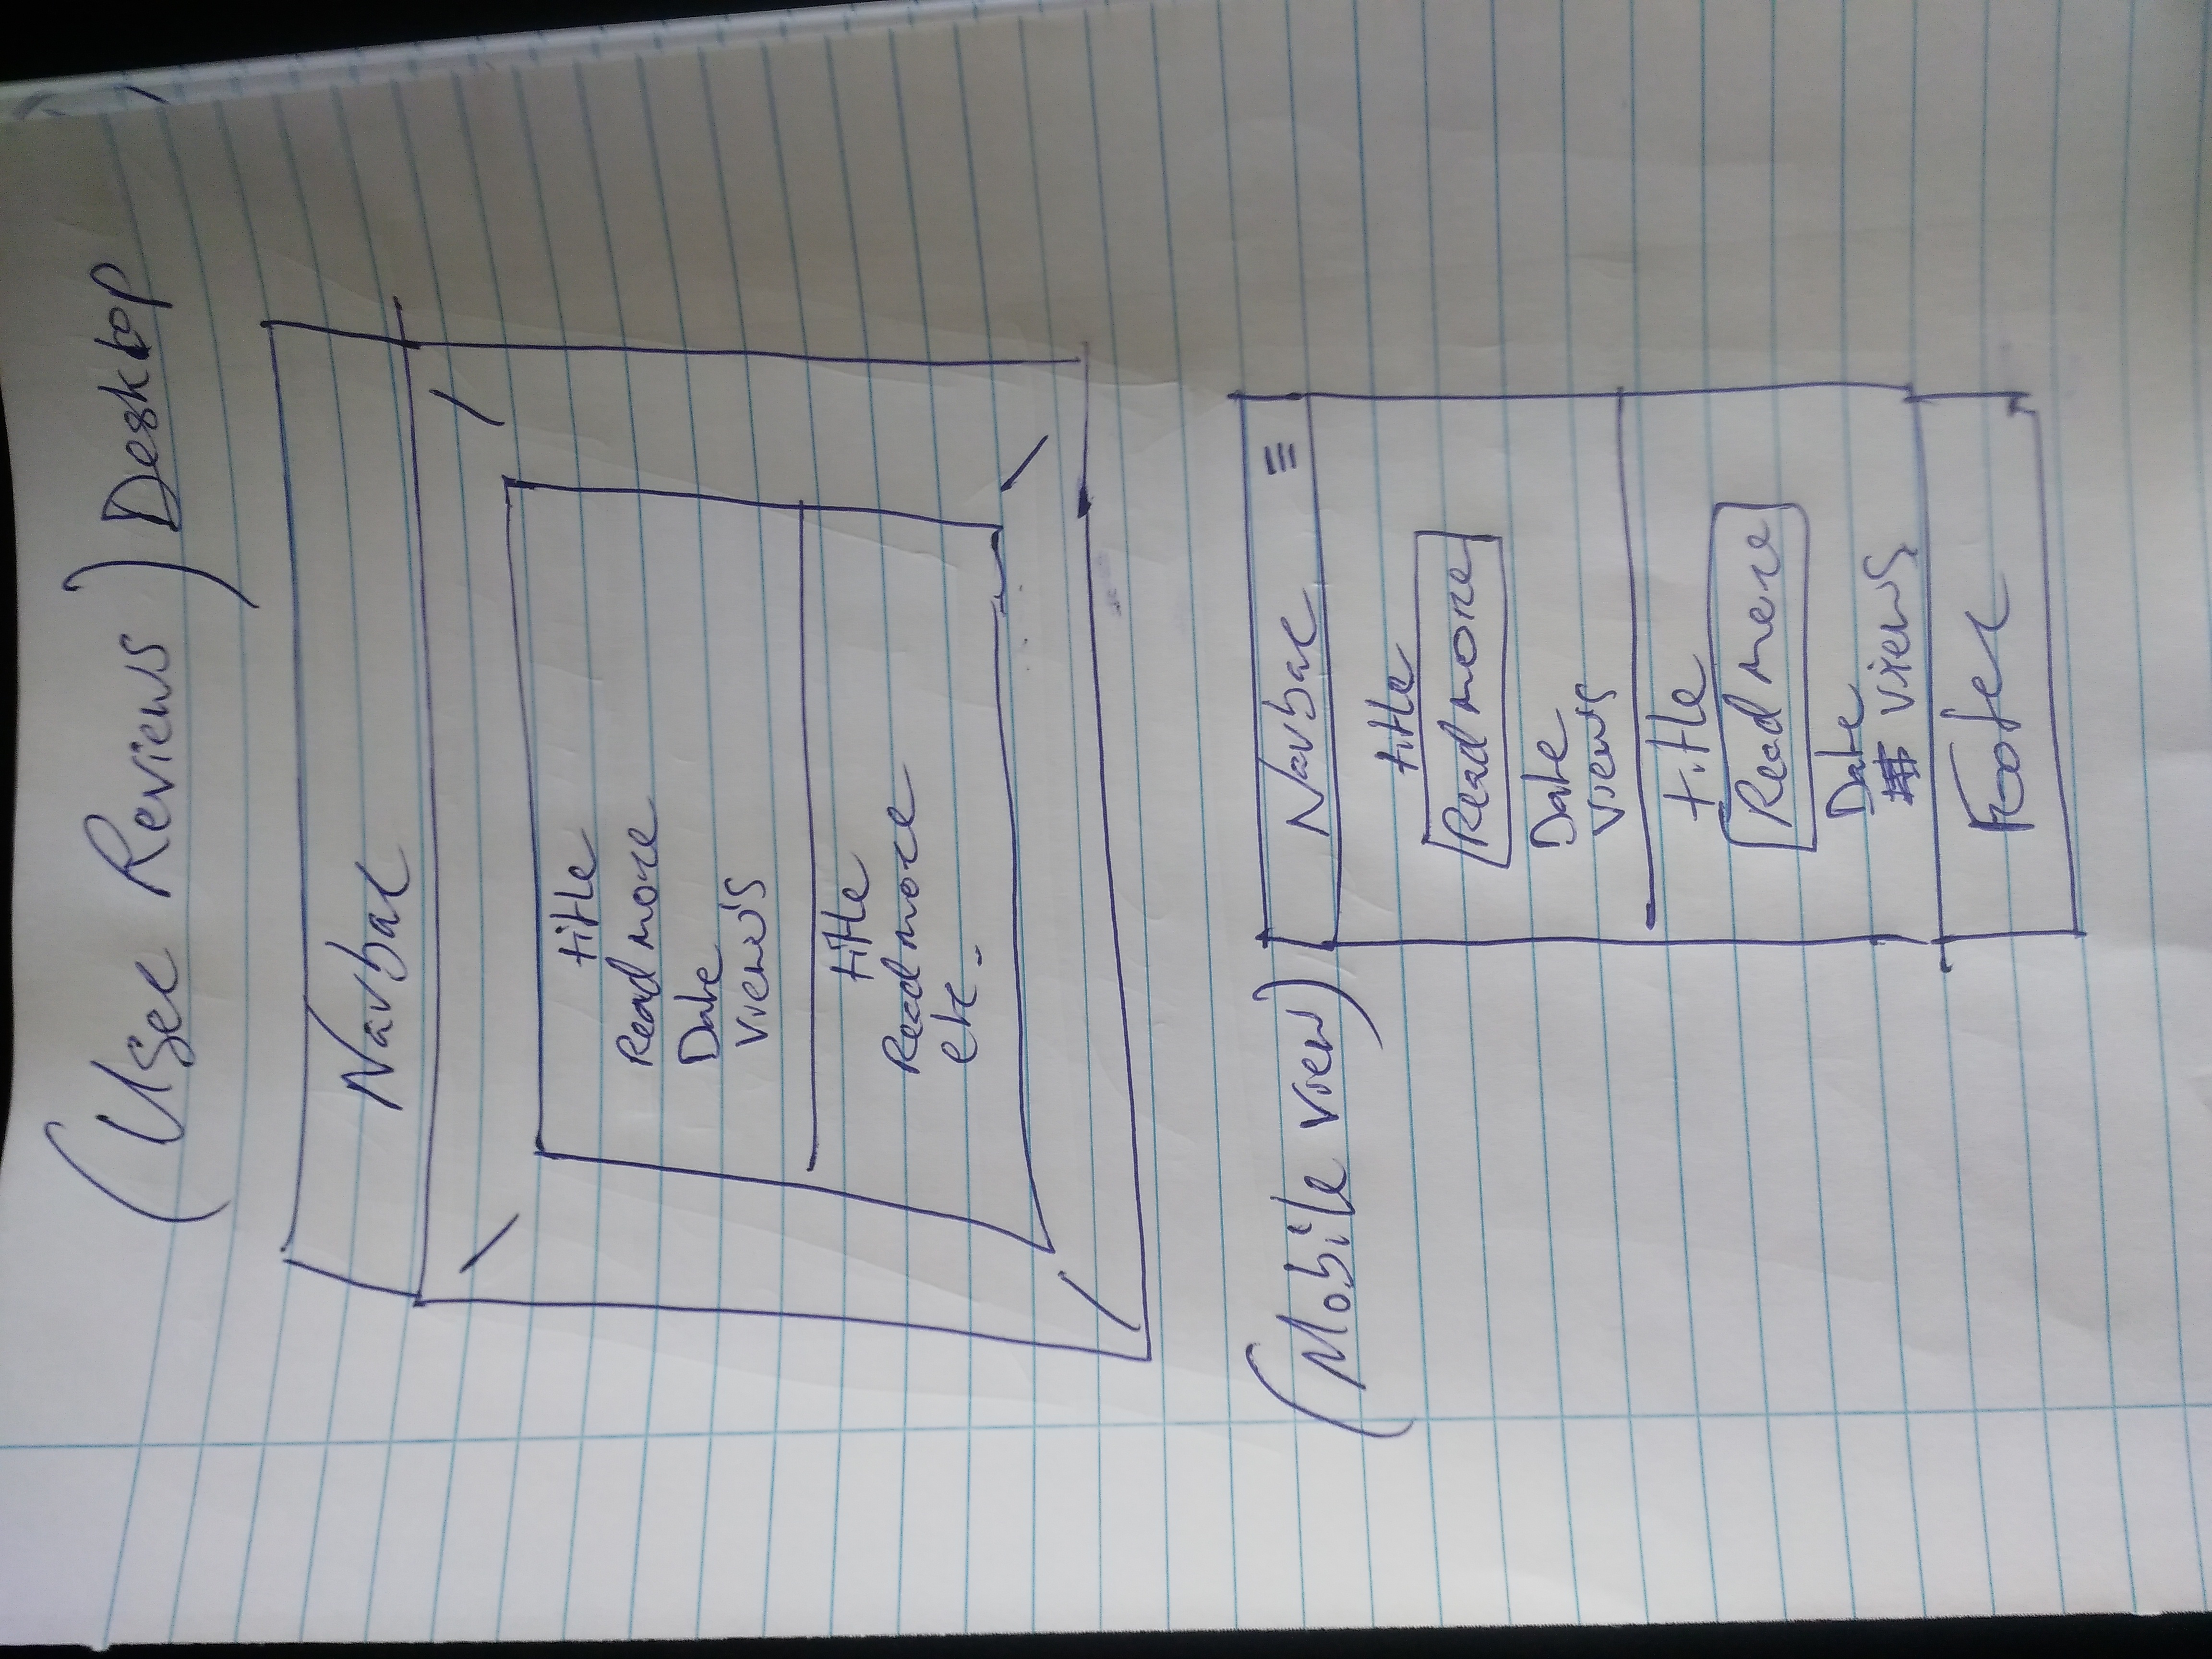 (User Reviews) Desktop
Navbar
title
Read more
Date
view's
title
Read more
etc.
(Mobile view)
Navbar ☰
title
Read more
Date
views
title
Read more
Date
views
Footer